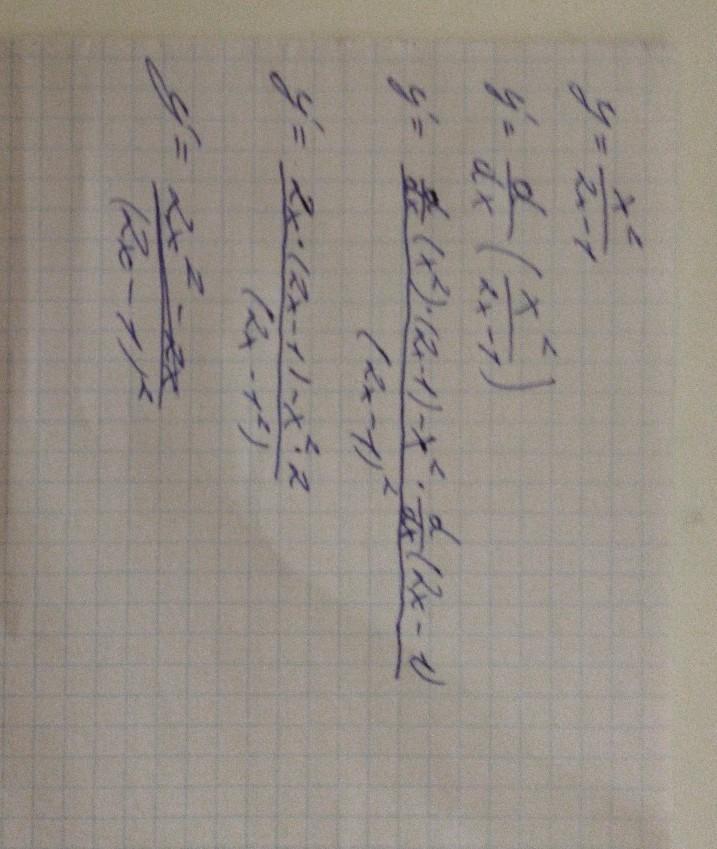 y = x² / 2x-1
y' = d/dx (x² / 2x-1)
y' = d/dx (x²)·(2x-1) - x² · d/dx (2x-1) / (2x-1)²
y' = 2x·(2x-1) - x²·2 / (2x-1²)
y' = 2x² - 2x / (2x-1)²